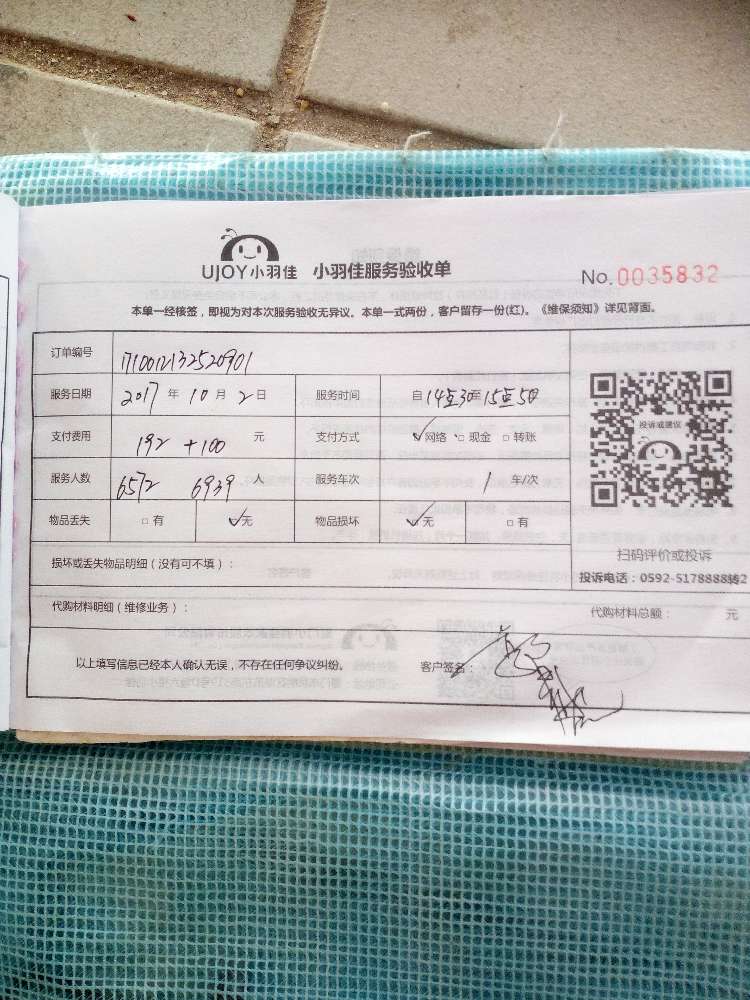 UJOY小羽佳 小羽佳服务验收单 No.0035832
本单一经核签，即视为对本次服务验收无异议。本单一式两份，客户留存一份(红)。《维保须知》详见背面。
订单编号 1710012132520901
服务日期 2017 年 10 月 2 日 服务时间 自14点30至15点50
支付费用 192 +100 元 支付方式 ✓网络 □ 现金 □ 转账
服务人数 6572 6939 人 服务车次 1 车/次
物品丢失 □ 有 ✓无 物品损坏 ✓无 □ 有
投诉或建议
扫码评价或投诉
投诉电话：0592-5178888转2
损坏或丢失物品明细（没有可不填）：
代购材料明细（维修业务）： 代购材料总额： 元
以上填写信息已经本人确认无误，不存在任何争议纠纷。 客户签名：